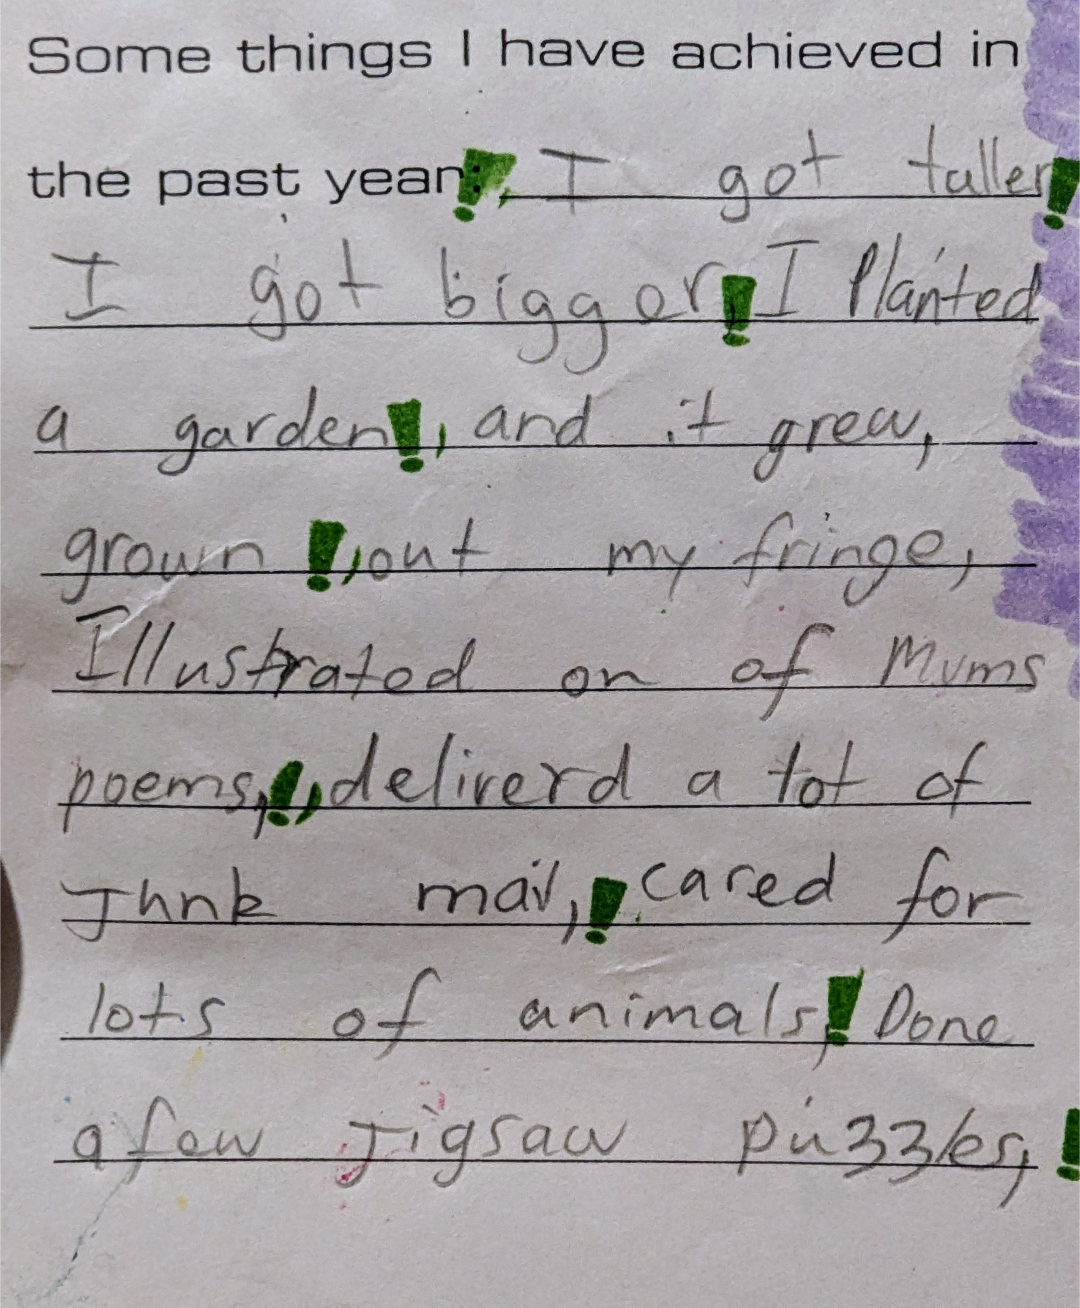 Some things I have achieved in
the past year:!, I got taller!
I got bigger! I Planted
a garden!, and it grew,
grown !, out my fringe,
Illustrated on of Mums
poems,!, deliverd a lot of
Jhnk mail,! cared for
lots of animals,! Done
a few Jigsaw puzzles,!